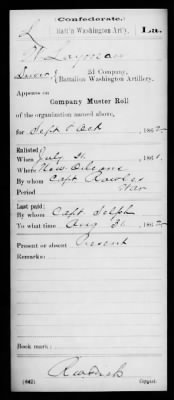 Confederate.
L Batt'n Washington Art'y. La.
W Layman
2d Company,
Battalion Washington Artillery.
Appears on
Company Muster Roll
of the organization named above,
for Sept & Oct , 186
Enlisted:
When July 21 , 186
Where New Orleans
By whom Capt Rowles
Period War
Last paid:
By whom Capt Selph
To what time Aug 31 , 186
Present or absent Present
Remarks:
Book mark:
(642) Copyist.